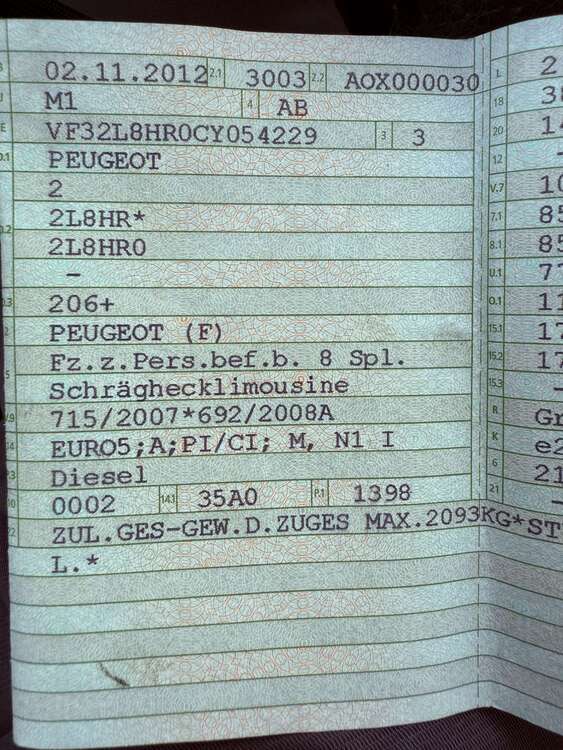 02.11.2012 2.1 3003 2.2 AOX000030 L 2
J M1 4 AB 18 38
E VF32L8HR0CY054229 3 3 20 14
D.1 PEUGEOT 12 -
2 V.7 10
D.2 2L8HR* 7.1 85
2L8HR0 8.1 85
- U.1 7
D.3 206+ O.1 11
2 PEUGEOT (F) 15.1 17
Fz.z.Pers.bef.b. 8 Spl. 15.2 17
5 Schräghecklimousine 15.3 -
V.9 715/2007*692/2008A R Gr
14 EURO5;A;PI/CI; M, N1 I K e2
P.3 Diesel 6 21
10 0002 14.1 35A0 P.1 1398 21 -
22 ZUL.GES-GEW.D.ZUGES MAX.2093KG*ST
L.*